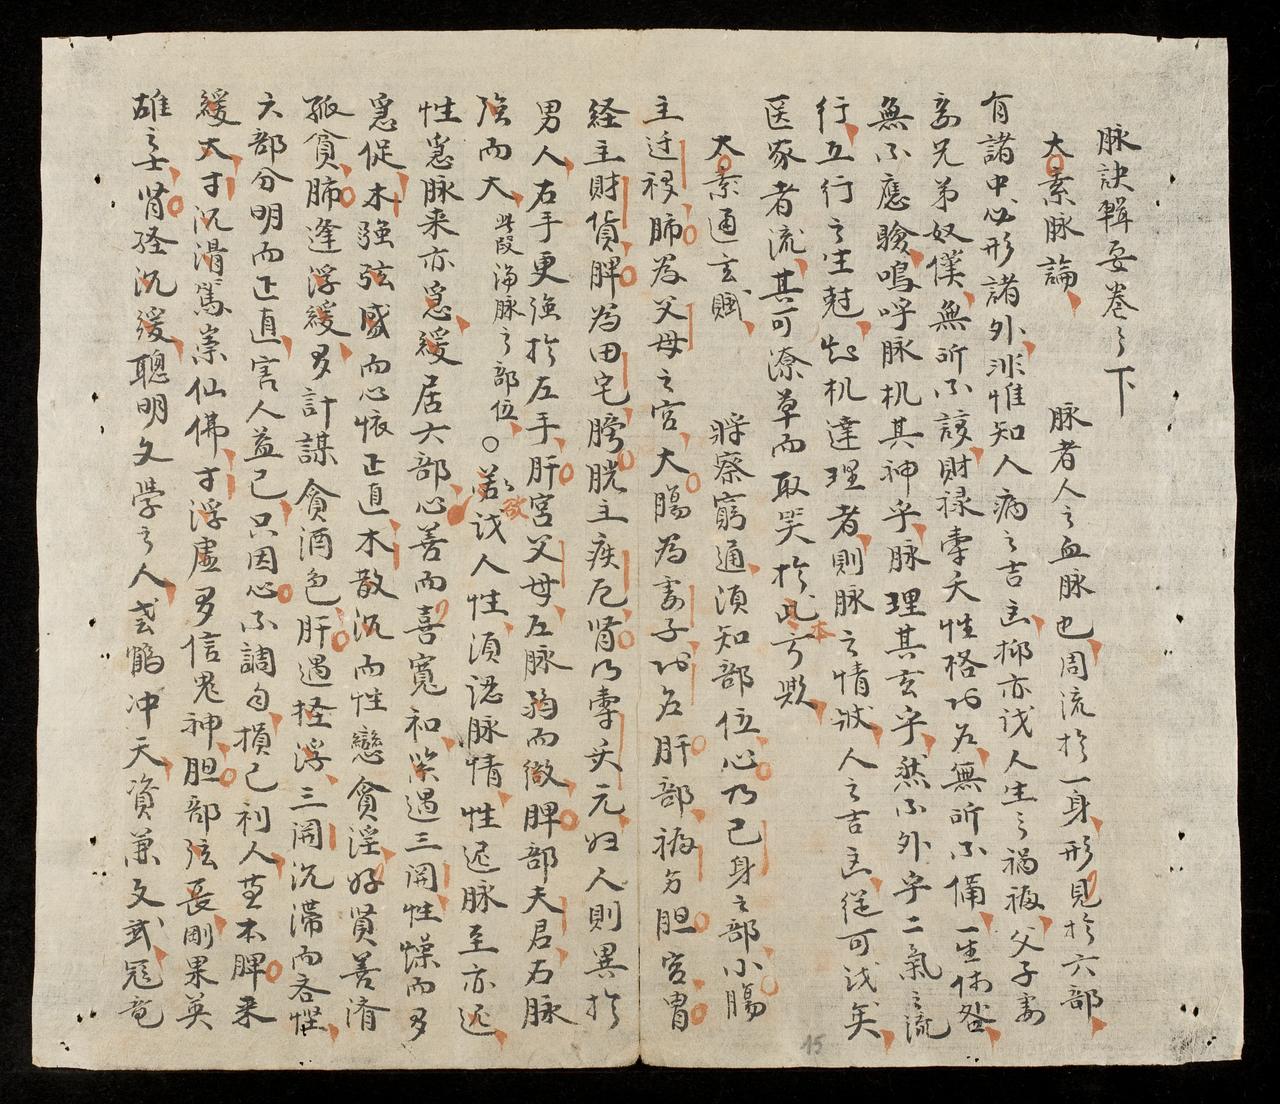 脉訣輯要卷之下
太素脉論 脉者人之血脉也周流於一身形見於六部
有諸中必形諸外非惟知人病之吉凶抑亦識人生之禍福父子妻
妾兄弟奴僕無所不該財禄壽夭性格功名無所不備一生休咎
無不應驗嗚呼脉机其神乎脉理其玄乎然不外乎二氣之流
行五行之生尅起机達理者則脉之情識人之吉凶従可識矣
医家者流其可潦草而取笑於此亐歟 本
太素通玄賦 将察窮通湏知部位心乃己身之部小腸
主迁移肺為父母之宮大腸為妻子功名肝部福分胆宮胃
経主財貨脾為田宅膀胱主疾厄肾乃壽夭元妇人則異於
男人右手更強於左手肝宮父母左脉弱而微脾部夫君右脉
強而大 此段論脉之部位 ○ 若欲識人性湏認脉情性遲脉至亦遲
性急脉来亦急緩居六部心善而喜寬和洪遇三関性燥而多
急促木強弦盛而心懐正直木散沉而性戀貪淫好賢善済
孤貧肺逢浮緩多計謀貪酒色肝遇挃浮三関沉滯而吝慳
六部分明而正直害人益己只因心不調匀損己利人葢本脾来
緩大寸沉滑篤崇仙佛寸浮虚多信鬼神胆部弦長剛果英
雄之士肾経沉緩聰明文学之人玄鶴冲天資兼文武冠竜
15